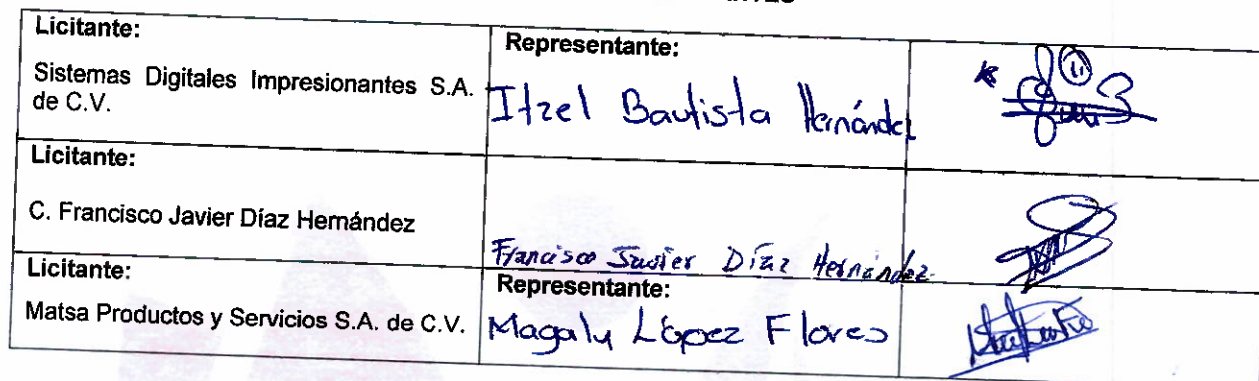 Licitante:
Sistemas Digitales Impresionantes S.A.
de C.V.
Representante:
Itzel Bautista Hernández
Licitante:
C. Francisco Javier Díaz Hernández
Francisco Javier Díaz Hernández
Licitante:
Matsa Productos y Servicios S.A. de C.V.
Representante:
Magaly López Flores